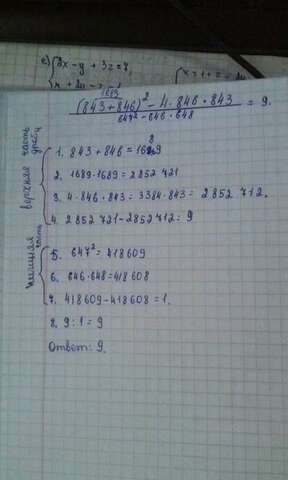 е) 2x - y + 3z = 7,
1689
(843+846)² - 4·846·843 = 9.
647² - 646·648
верхняя часть
дроби
1. 843 + 846 = 1689
2. 1689·1689 = 2852721
3. 4·846·843 = 3384·843 = 2852712.
4. 2852721 - 2852712 = 9
часть
5. 647² = 418609
6. 646·648 = 418608
7. 418609 - 418608 = 1.
8. 9 : 1 = 9
Ответ: 9.